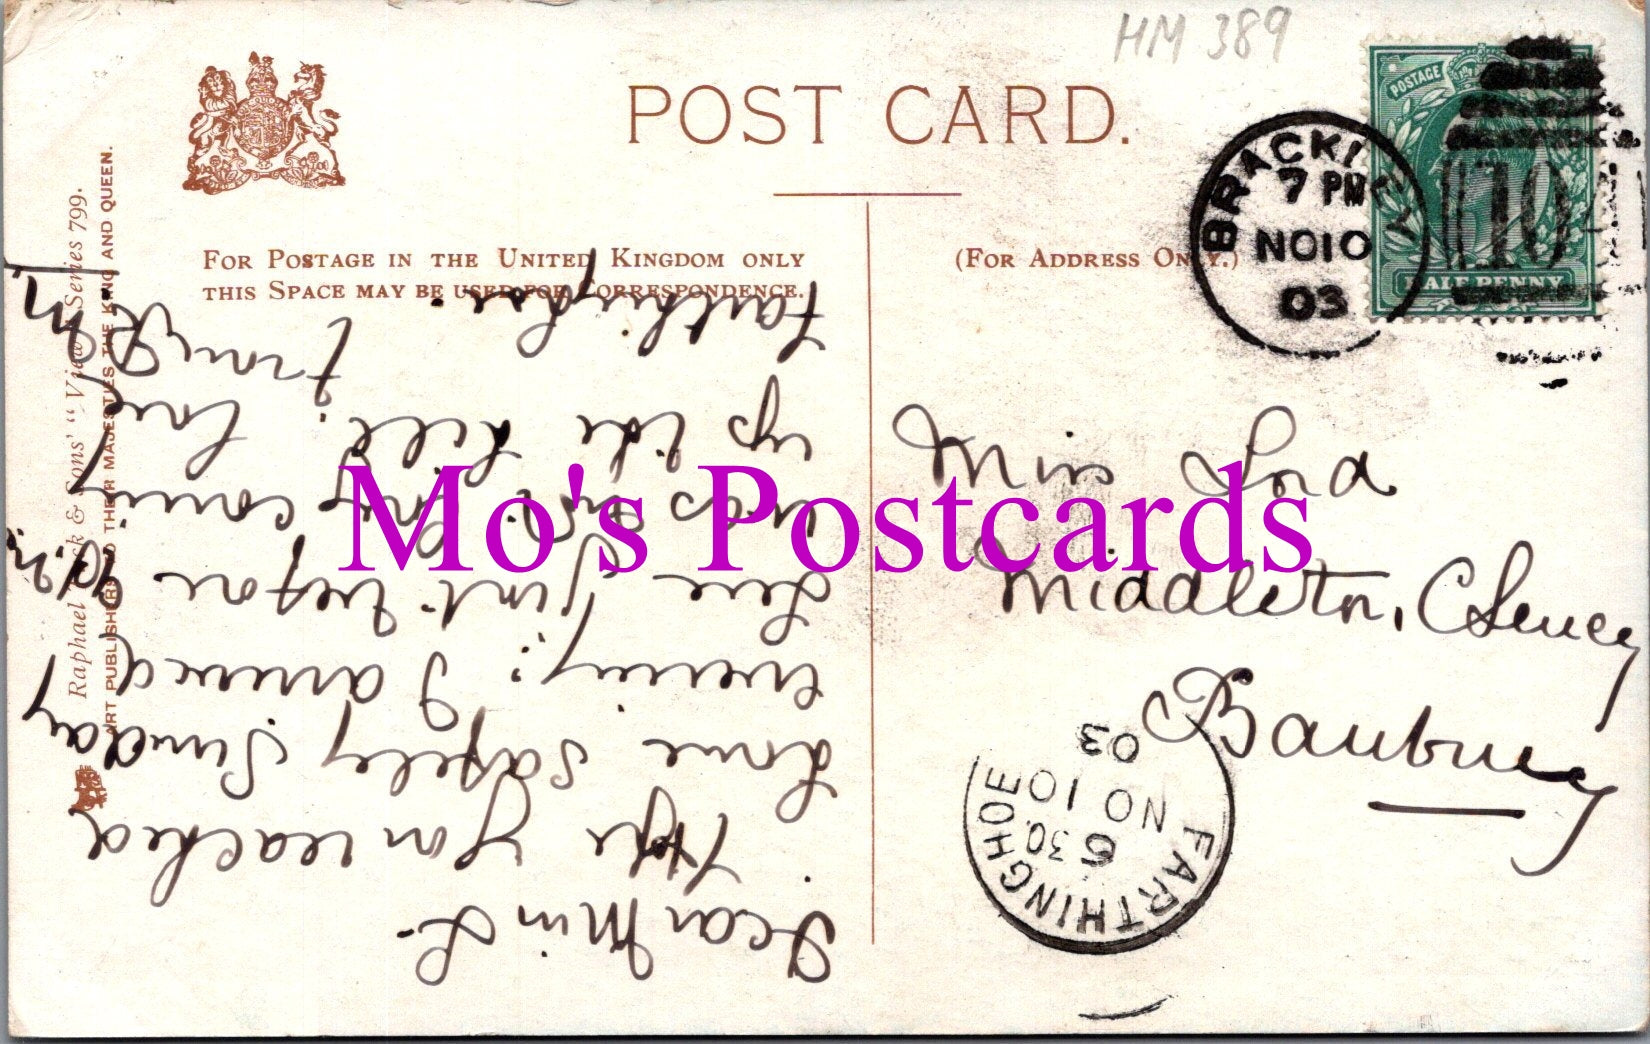 HM 389
POST CARD.
POSTAGE
HALFPENNY
BRACKLEY
7 PM
NO 10
03
104
FOR POSTAGE IN THE UNITED KINGDOM ONLY
THIS SPACE MAY BE USED FOR CORRESPONDENCE.
(FOR ADDRESS ONLY.)
Raphael Tuck & Sons' "View" Series 799.
ART PUBLISHERS TO THEIR MAJESTIES THE KING AND QUEEN.
Miss Lord
Middleton, Cheney
Banbury
FARTHINGHOE
6 30
NO 10
03
Dear Miss L.
Hope you reached
home safely Sunday
evening. I arrived
here just before
was not long coming
up the hill. Love
from
Farthinghoe.
Mo's Postcards